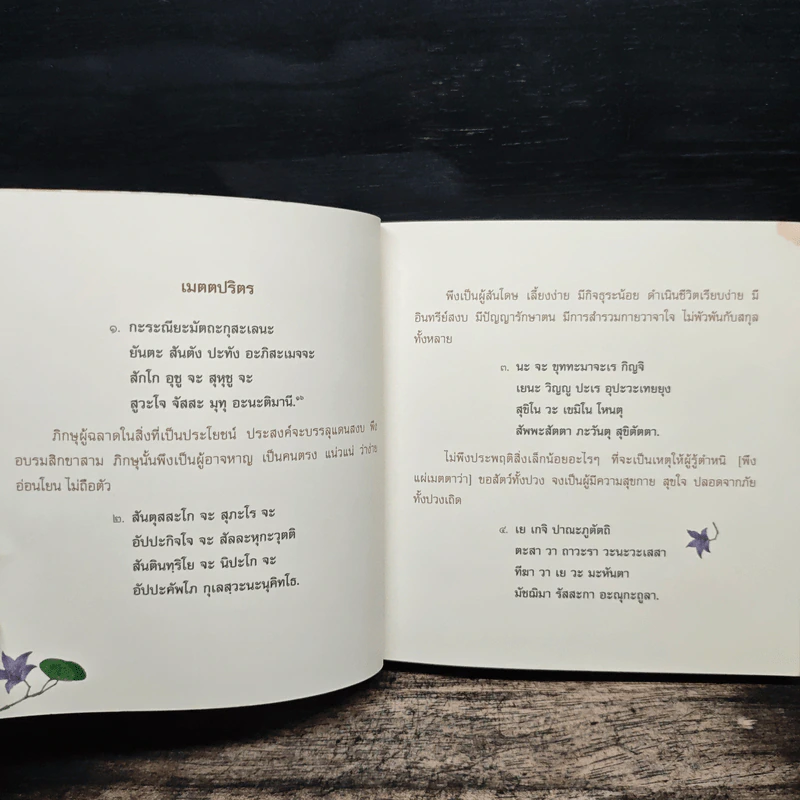 เมตตปริตร
๑. กะระณียะมัตถะกุสะเลนะ
ยันตะ สันตัง ปะทัง อะภิสะเมจจะ
สักโก อุชู จะ สุหุชู จะ
สูวะโจ จัสสะ มุทุ อะนะติมานี.๑๖
ภิกษุผู้ฉลาดในสิ่งที่เป็นประโยชน์ ประสงค์จะบรรลุแดนสงบ พึง
อบรมสิกขาสาม ภิกษุนั้นพึงเป็นผู้อาจหาญ เป็นคนตรง แน่วแน่ ว่าง่าย
อ่อนโยน ไม่ถือตัว
๒. สันตุสสะโก จะ สุภะโร จะ
อัปปะกิจโจ จะ สัลละหุกะวุตติ
สันตินทฺริโย จะ นิปะโก จะ
อัปปะคัพโภ กุเลสฺวะนะนุคิทโธ.
พึงเป็นผู้สันโดษ เลี้ยงง่าย มีกิจธุระน้อย ดำเนินชีวิตเรียบง่าย มี
อินทรีย์สงบ มีปัญญารักษาตน มีการสำรวมกายวาจาใจ ไม่พัวพันกับสกุล
ทั้งหลาย
๓. นะ จะ ขุททะมาจะเร กิญจิ
เยนะ วิญญู ปะเร อุปะวะเทยยุง
สุขิโน วะ เขมิโน โหนตุ
สัพพะสัตตา ภะวันตุ สุขิตัตตา.
ไม่พึงประพฤติสิ่งเล็กน้อยอะไรๆ ที่จะเป็นเหตุให้ผู้รู้ตำหนิ [พึง
แผ่เมตตาว่า] ขอสัตว์ทั้งปวง จงเป็นผู้มีความสุขกาย สุขใจ ปลอดจากภัย
ทั้งปวงเถิด
๔. เย เกจิ ปาณะภูตัตถิ
ตะสา วา ถาวะรา วะนะวะเสสา
ทีฆา วา เย วะ มะหันตา
มัชฌิมา รัสสะกา อะณุกะถูลา.